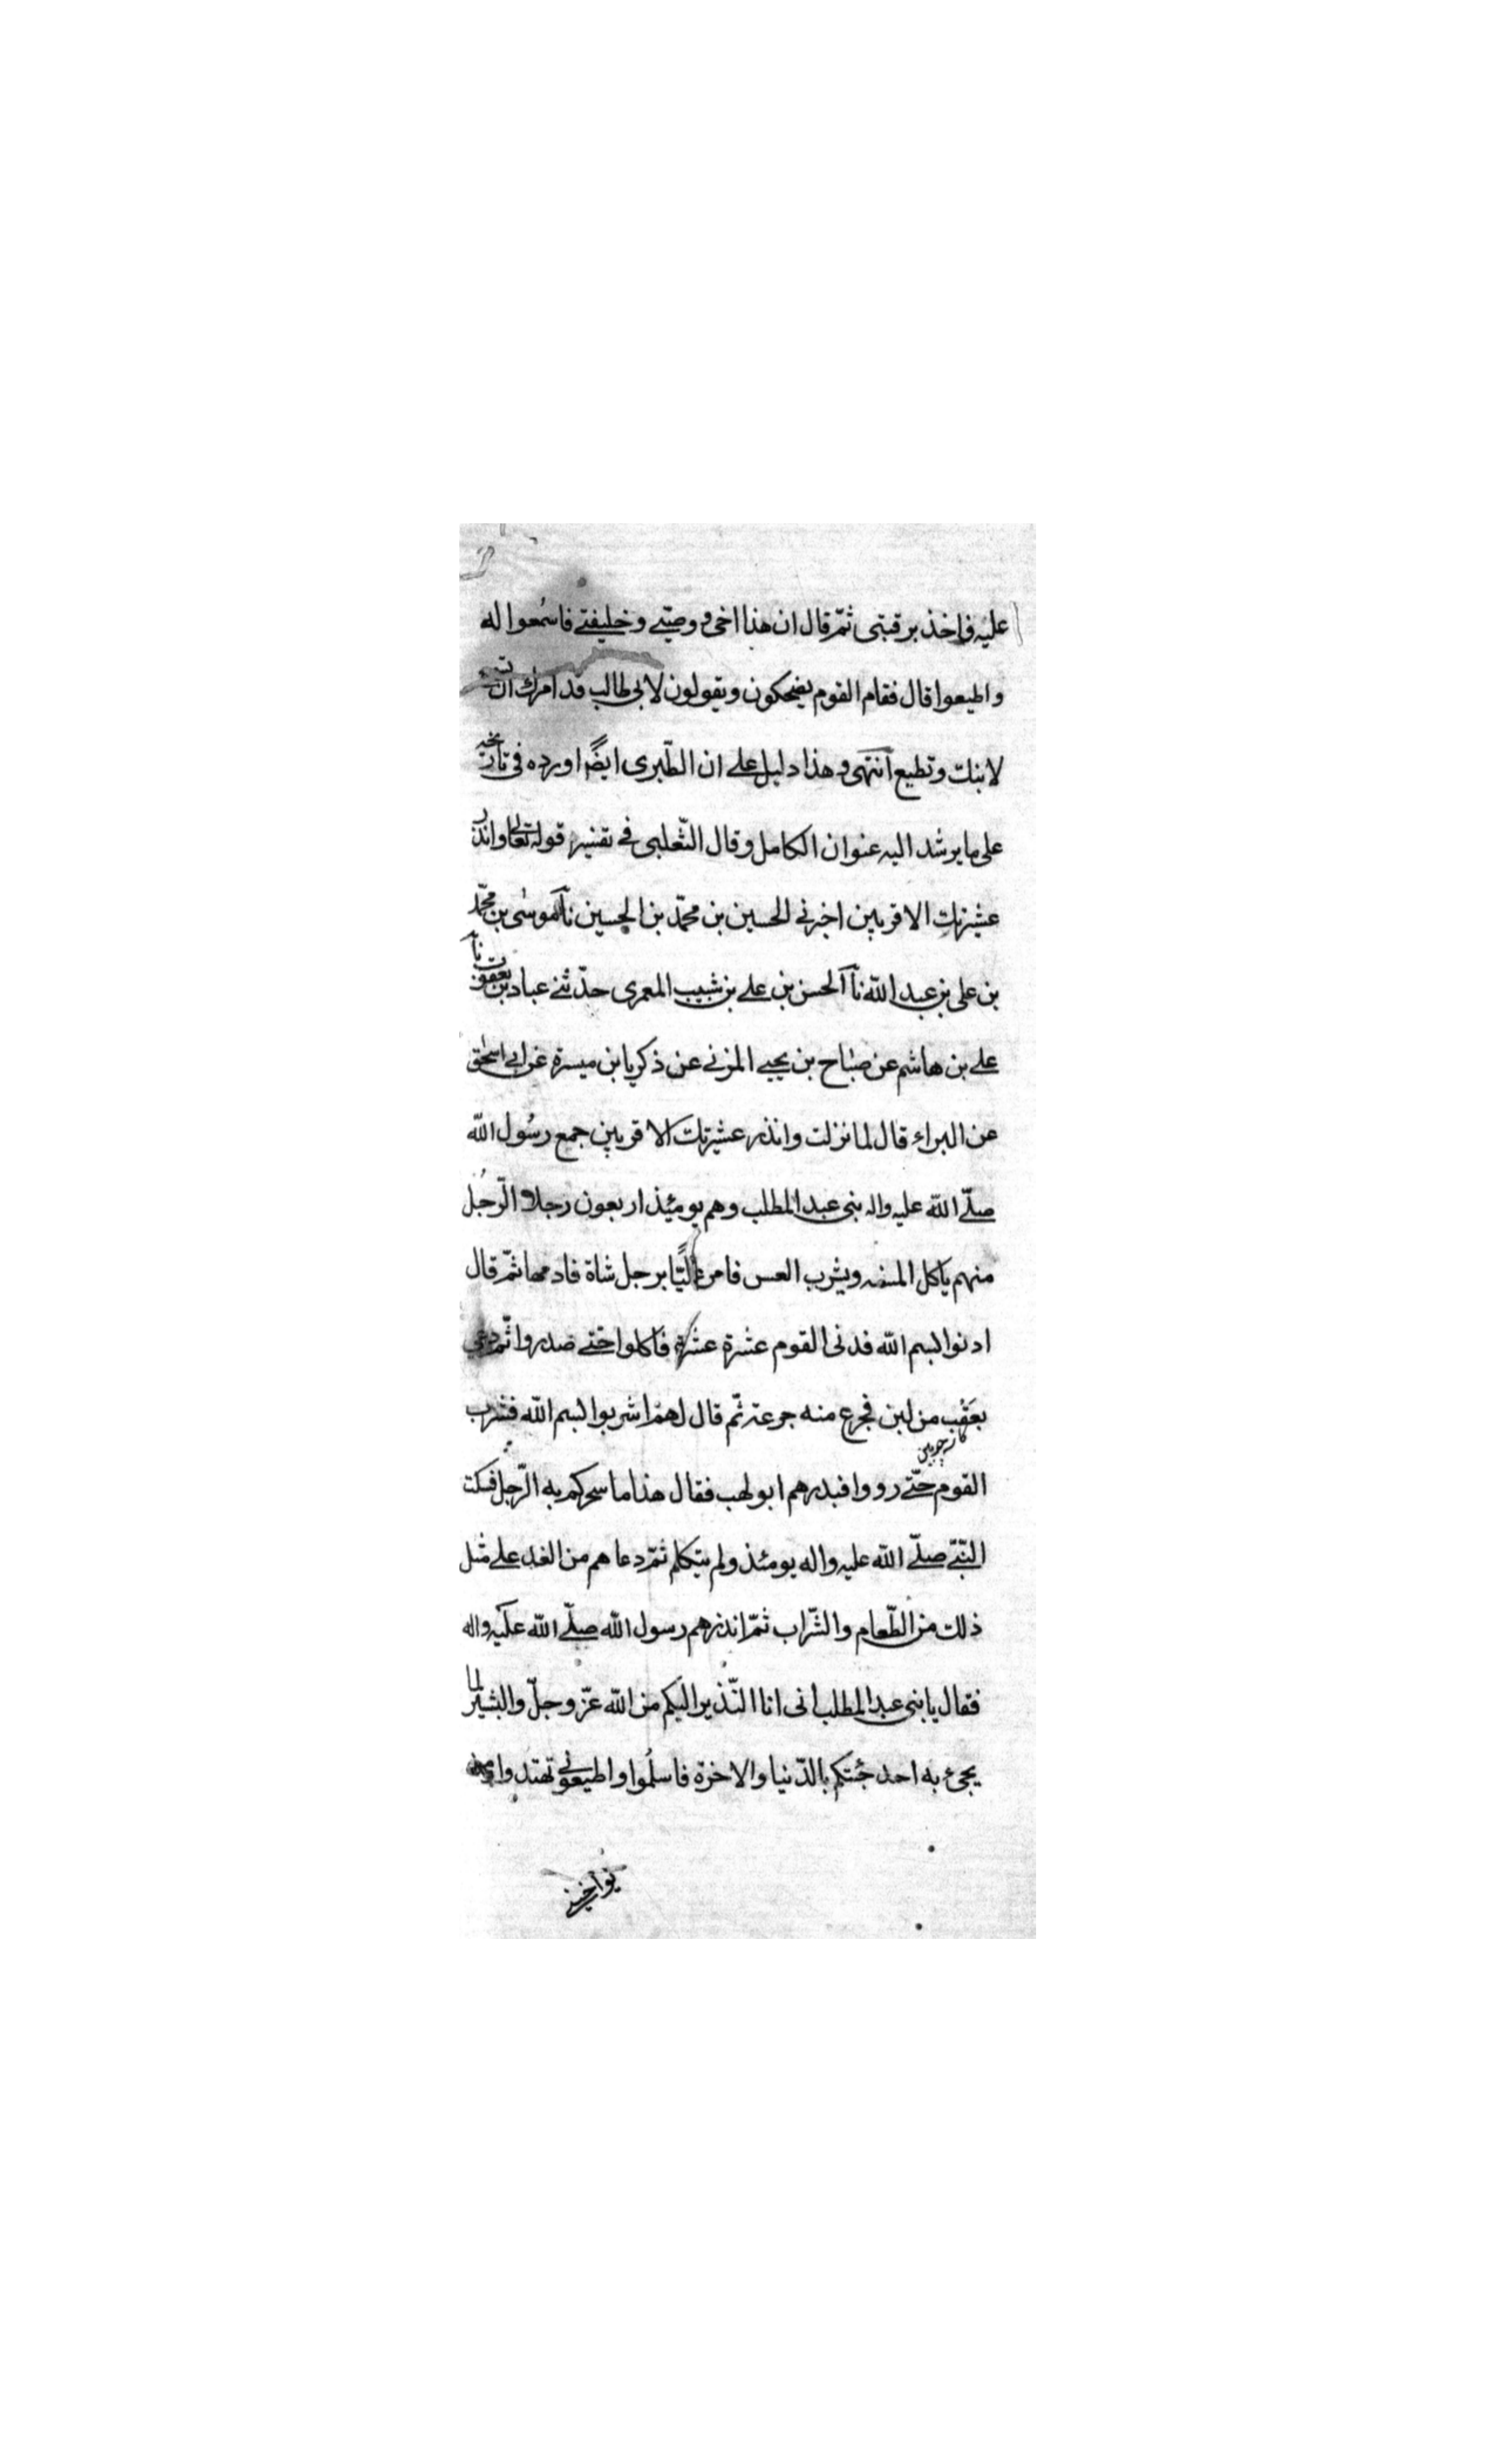 عليه فاخذ برقبتى ثمّ قال ان هذا اخى و وصيّے و خليفتے فاسمعوا له
واطيعوا قال فقام القوم يضحكون ويقولون لابى طالب قد امرك ان تسمع
لابنك وتطيع انتهى وهذا دليل على ان الطّبرى ايضًا اورده فى تاريخه
على ما يرشد اليه عنوان الكامل وقال الثّعلبى فى تفسير قوله تعالى وانذر
عشيرتك الاقربين اخبرنے الحسين بن محمّد بن الحسين نآ موسٰى بن محمّد
بن على بن عبد الله نآ الحسن بن علے بن شبيب المعمرى حدّثنے عباد بن يعقوب نآ
علے بن هاشم عن صباح بن يحيے المزنے عن ذكريا بن ميسرة عن ابى اسحٰق
عن البراء قال لما نزلت وانذر عشيرتك الاقربين جمع رسُول الله
صلّے الله عليه واله بنى عبد المطلب وهم يومئذ اربعون رجلا الرّجُل
منهم ياكل المسنه ويشرب العس فامر عليًّا برجل شاة فادمها ثمّ قال
ادنوا بسم الله فدنى القوم عشرة عشرة فاكلوا حتے صدروا ثمّ دعى
بعقب من لبن فجرع منه جرعة ثمّ قال لهم اشربوا بسم الله فشرب
القوم حتّے رووا فبدرهم ابو لهب فقال هذا ما سحركم به الرّجل فسكت
النّبيّ صلّے الله عليه واله يومئذ ولم يتكلم ثمّ دعاهم من الغد علے مثل
ذلك من الطّعام والشّراب ثمّ انذرهم رسول الله صلّے الله عليه واله
فقال يا بنى عبد المطلب انى انا النّذير اليكم من الله عزّ وجلّ والبشير لما
يجىء به احد جئتكم بالدّنيا والاخرة فاسلُموا واطيعونے تهتدوا ومن
يواخينى